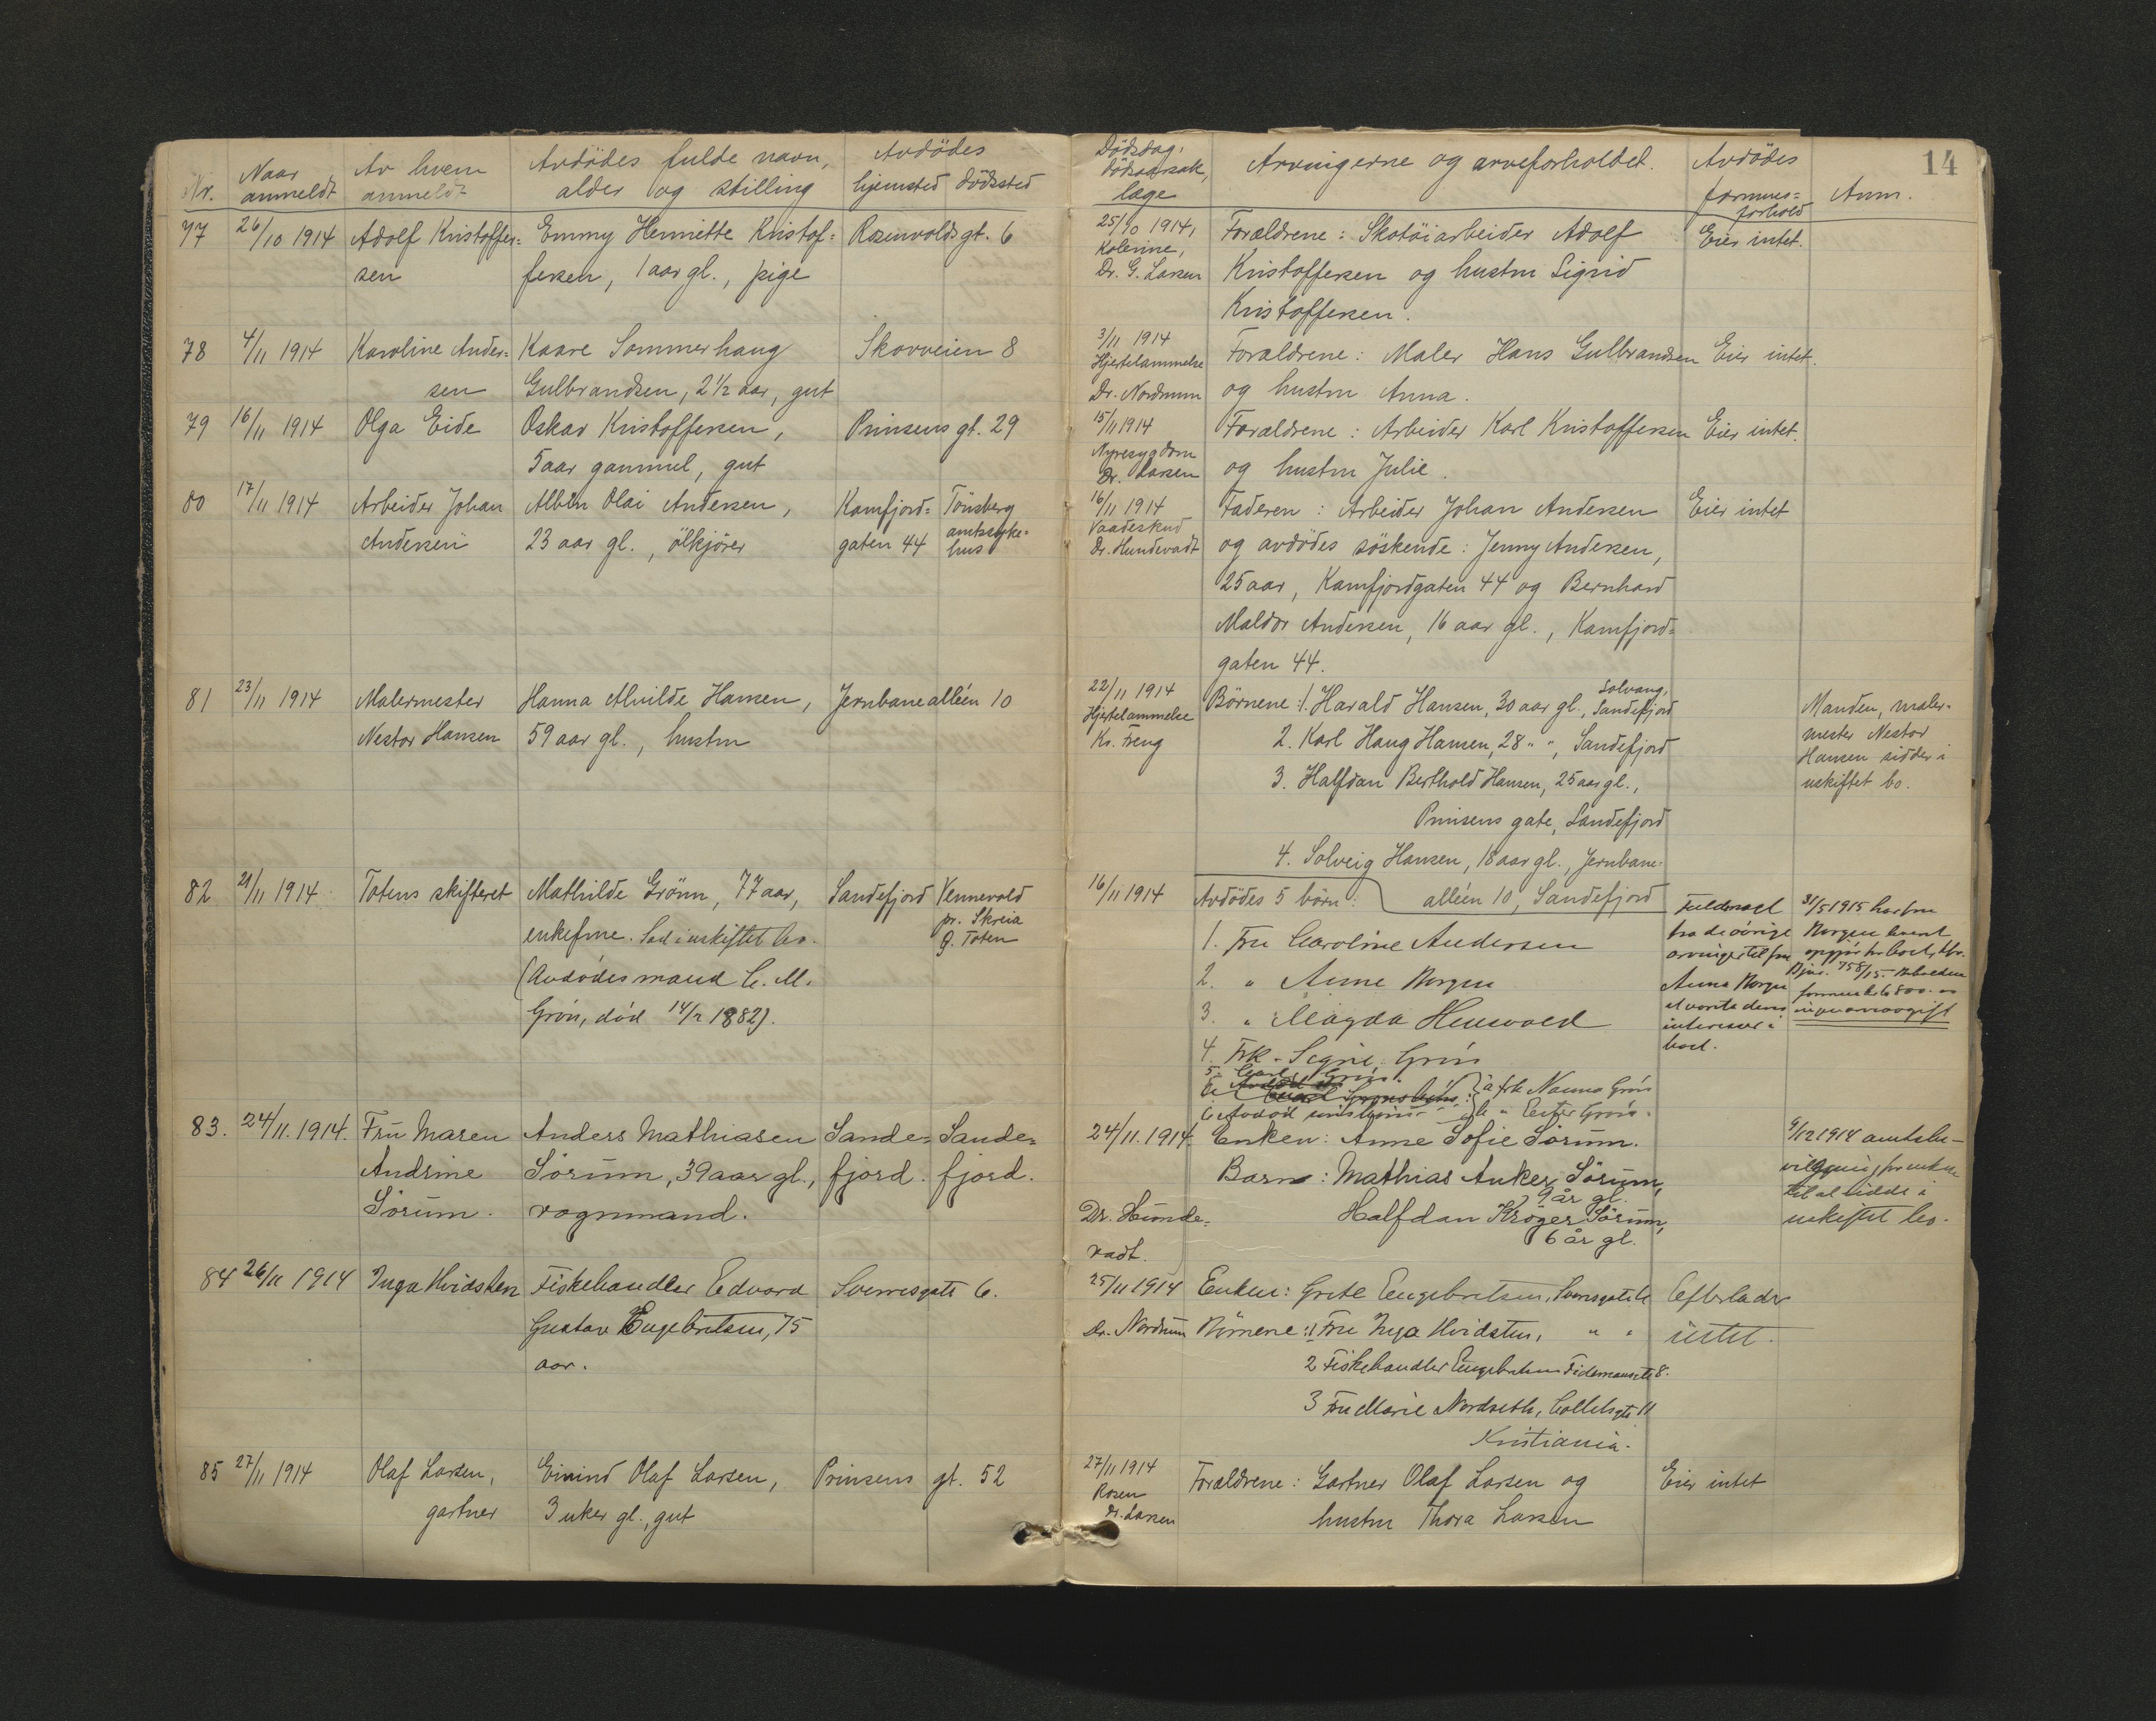 14
Nr.
Naar anmeldt
Av hvem anmeldt
Avdödes fulde navn, alder og stilling
Avdödes
hjemsted dödssted
Dödsdag,
dödsaarsak,
læge
Arvingerne og arveforholdet.
Avdödes
formues=
forhold
Anm.
77 26/10 1914 Adolf Kristoffer= Emmy Henriette Kristof= Rosenvoldsgt. 6
sen fersen, 1 aar gl., pige
25/10 1914,
Kolerine,
Dr. G. Larsen
Forældrene: Skotöiarbeider Adolf
Kristoffersen og hustru Sigrid
Kristoffersen.
Eier intet.
78 4/11 1914 Karoline Ander= Kaare Sommerhaug Skovveien 8
sen Gulbrandsen, 2 1/2 aar, gut
3/11 1914
Hjertelammelse
Dr. Nordrum
Forældrene: Maler Hans Gulbrandsen
og hustru Anna.
Eier intet.
79 16/11 1914 Olga Eide Oskar Kristoffersen, Prinsens gt. 29
5 aar gammel, gut
15/11 1914
Nyresygdom
Dr. Larsen
Forældrene: Arbeider Karl Kristoffersen
og hustru Julie.
Eier intet.
80 17/11 1914 Arbeider Johan Albin Olai Andersen, Kamfjord= Tönsberg
Andersen 23 aar gl., ölkjörer gaten 44 amtssyke=
hus
16/11 1914
Vaadeskud
Dr. Hundevadt
Faderen: Arbeider Johan Andersen
og avdödes söskende: Jenny Andersen,
25 aar, Kamfjordgaten 44 og Bernhard
Maldor Andersen, 16 aar gl., Kamfjord=
gaten 44.
Eier intet
81 23/11 1914 Malermester Hanna Alvilde Hansen, Jernbanealléen 10
Nestor Hansen 59 aar gl., hustru
22/11 1914
Hjertelammelse
Kr. Freng
Börnene: 1. Harald Hansen, 30 aar gl., Solvang, Sandefjord
2. Karl Haug Hansen, 28 " ", Sandefjord
3. Halfdan Berthold Hansen, 25 aar gl.,
Prinsens gate, Sandefjord
4. Solveig Hansen, 18 aar gl., Jernbane=
alléen 10, Sandefjord
Manden, maler=
mester Nestor
Hansen sidder i
uskiftet bo.
82 21/11 1914 Totens skifteret Mathilde Grönn, 77 aar, Sandefjord Vennevold
enkefrue. Sad i uskiftet bo. pr. Skreia
Ø. Toten
(Avdödes mand C. M.
Grön, död 14/2 1882).
16/11 1914
Avdödes 5 börn:
1. Fru Caroline Andersen
2. " Anne Norgen
3. " Magda
4. Frk. Signe Grön
5. Carl Grön.
a frk Nanna Grön
b " Ester Grön.
Fuldmagt
fra de övrige
arvinger til fru
Anna Norgen
at vareta deres
interesser i
boet.
31/5 1915 har fru
Norgen levert
ingen arveavgift
83. 24/11. 1914. Fru Maren Anders Mathiasen Sande= Sande=
Andrine Sörum, 39 aar gl., fjord. fjord.
Sörum. vognmand.
24/11. 1914.
Dr. Hunde=
vadt.
Enken: Anne Sofie Sörum.
Barn: Mathias Anker Sörum,
9 år gl.
Halfdan Kröger Sörum,
6 år gl.
9/12 1914 amtsbe-
vilgning for enken
til at sidde i
uskiftet bo.
84 26/11 1914 Inga Hvidsten Fiskehandler Edvard Sverresgate 6.
Gustav Engebretsen, 75
aar.
25/11 1914
Dr. Nordrum
Enken: Grete Engebretsen, Sverresgate 6
Börnene: 1 Fru Inga Hvidsten, " "
2 Fiskehandler Engebretsen Tidemansgt 8.
3 Fru Marie Nordseth, Colletsgt 11
Kristiania.
Efterlader
intet.
85 27/11 1914 Olaf Larsen, Eivind Olaf Larsen, Prinsens gt. 52
gartner 3 uker gl., gut
27/11 1914
Rosen
Dr. Larsen
Forældrene: Gartner Olaf Larsen og
hustru Thora Larsen
Eier intet